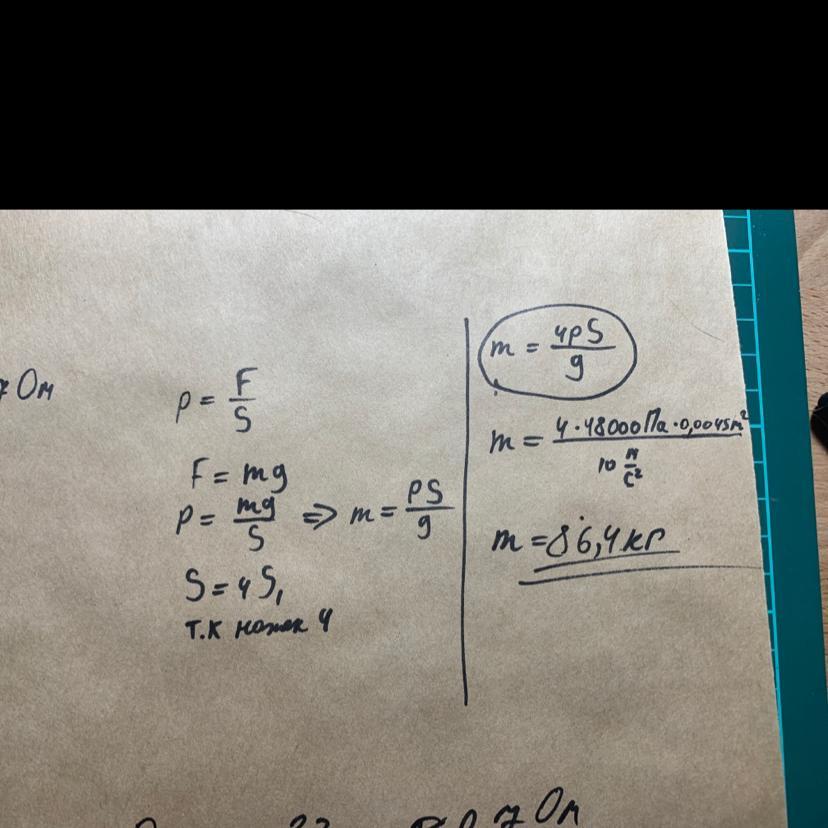 Ом
p = F/S
F = mg
P = mg/S ⇒ m = PS/g
S = 4S₁
т.к ножек 4
m = 4pS/g
m = 4·48000Па·0,0045м² / 10 м/с²
m = 86,4 кг
Ом